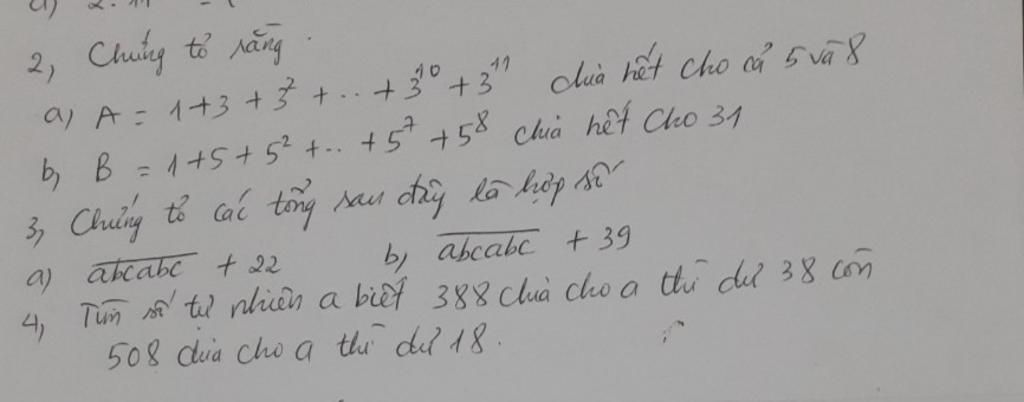 2, Chứng tỏ rằng.
a) A = 1+3+3² + .. + 3¹⁰ + 3¹¹ chia hết cho cả 5 và 8
b, B = 1+5+5² +.. + 5⁷ + 5⁸ chia hết cho 31
3, Chứng tỏ các tổng sau đây là hợp số
a) abcabc + 22 b, abcabc + 39
4, Tìm số tự nhiên a biết 388 chia cho a thì dư 38 còn
508 chia cho a thì dư 18.